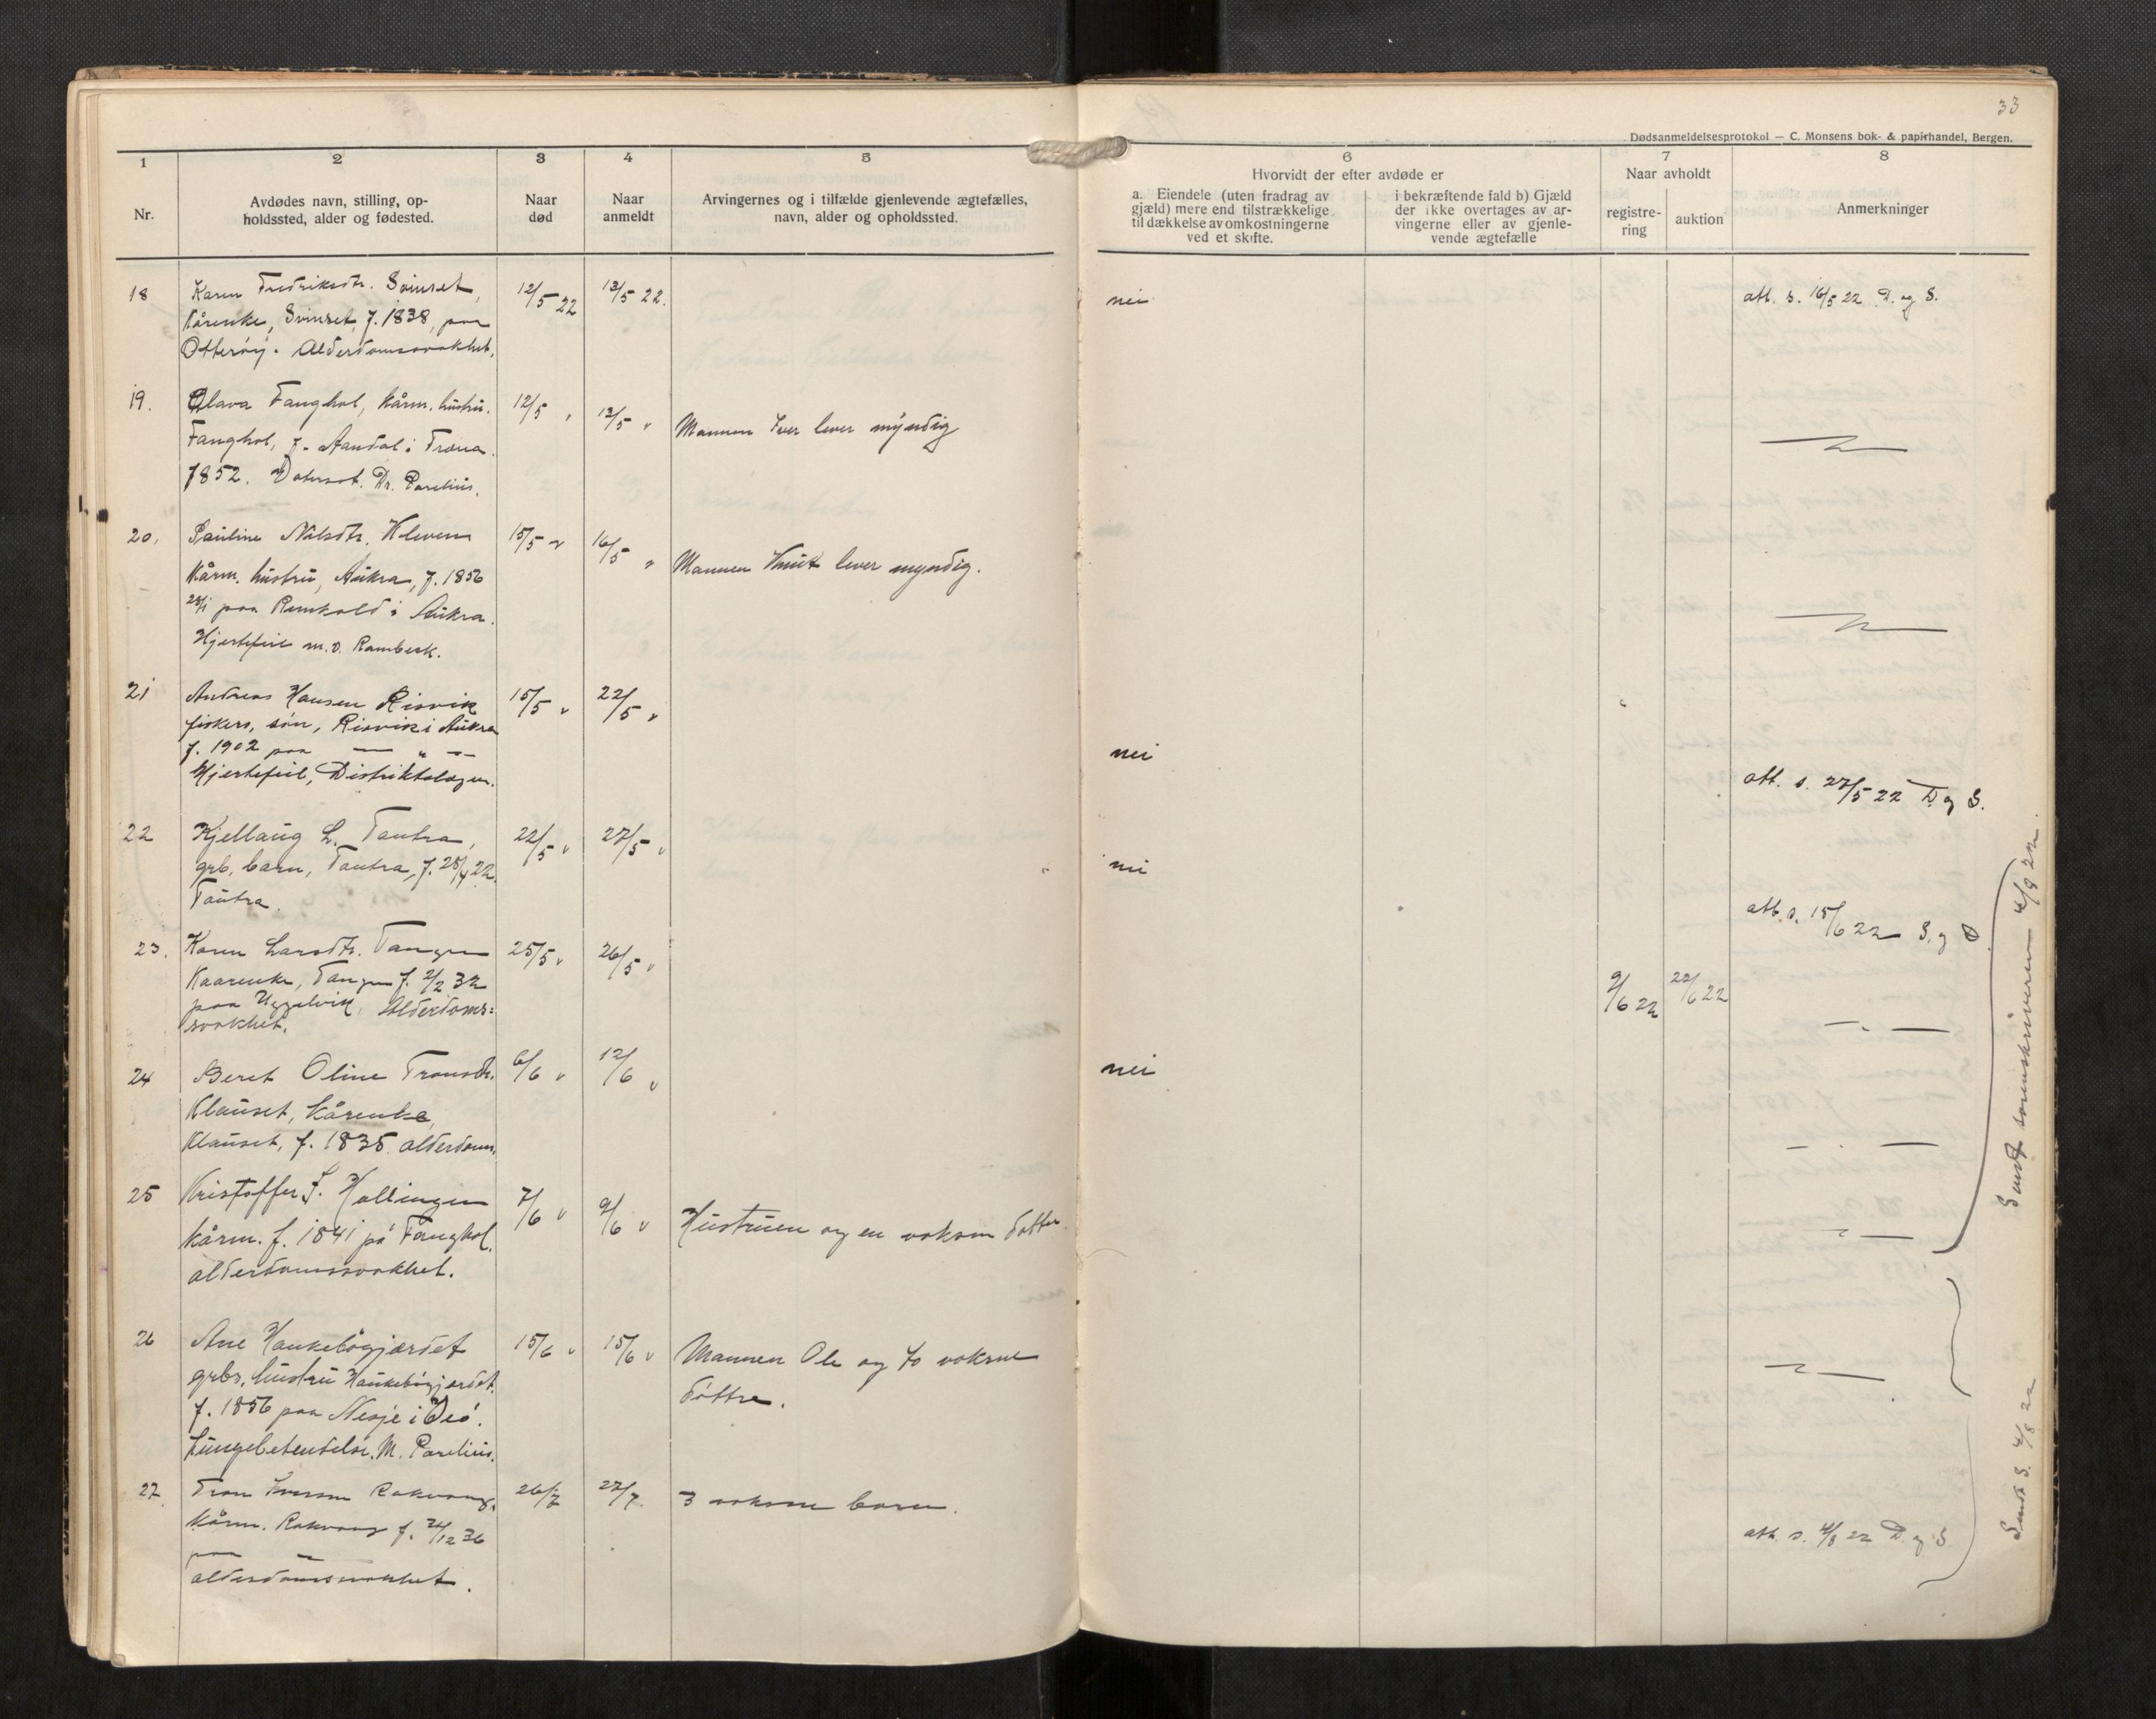 33
Dødsanmeldelsesprotokol — C. Monsens bok- & papirhandel, Bergen.
1 2 3 4 5 6 7 8
Nr.
Avdødes navn, stilling, op-
holdssted, alder og fødested.
Naar
død
Naar
anmeldt
Arvingernes og i tilfælde gjenlevende ægtefælles,
navn, alder og opholdssted.
Hvorvidt der efter avdøde er
a. Eiendele (uten fradrag av
gjæld) mere end tilstrækkelige
til dækkelse av omkostningerne
ved et skifte.
i bekræftende fald b) Gjæld
der ikke overtages av ar-
vingerne eller av gjenle-
vende ægtefælle
Naar avholdt
registre-
ring
auktion
Anmerkninger
18 Karen Fredriksdtr. Svinset, 12/5 22 13/5 22. nei att. s. 16/5 22 D. og S.
Kårenke, Svinset, f. 1838, paa
Otterøy. Alderdomssvakhet.
19. Olava Fanghol, kårm. hustru. 12/5 " 13/5 " Mannen Iver lever myndig
Fanghol, f. Aandal i
1852. Dr. Parelius.
20. Pauline Nilsdtr. Kleven 15/5 " 16/5 " Mannen Knut lever myndig.
Kårm. hustru, Aukra, f. 1856
paa i Aukra.
Hjertefeil m. v. Rambeck.
21 Andreas Hansen Risvik 15/5 " 22/5 " nei att. s. 27/5 22 D og S.
fiskers, søn, Risvik i Aukra
f. 1902 paa — " —
Hjertefeil, Distriktslægen.
22 Kjellaug L. Tautra, 22/5 " 27/5 " nei att s. 15/6 22 S. og D.
grb. barn, Tautra, f. 25/4 22.
Tautra.
23. Karen Larsdtr. Tangen 25/5 " 26/5 " 9/6 22 22/6 22 — " —
Kaarenke, Tangen f. 2/2 32
paa Uggelvik, Alderdoms=
svakhet.
24 Beret Oline Tronsdtr. 6/6 " 12/6 " nei — " —
Klauset, Kårenke,
Klauset, f. 1835. alderdom.
25 Kristoffer F. Hollingen 7/6 " 9/6 " Hustruen og en voksen datter — " —
Kårm. f. 1841 på Fanghol.
alderdomssvakhet.
26 Ane Haukebøgjærdet 15/6 " 15/6 " Mannen Ole og to voksne — " —
grbr. hustru Haukebøgjærdet. døttre.
f. 1856 paa Nesje i Veø.
Lungebetendelse. M. Parelius.
27. Tron Iversen Rakvaag, 26/7 27/7. 3 voksne barn. att. s. 4/8 22 D. og S.
Kårm. Rakvaag f.
paa — " —
alderdomssvakhet.
Sendt sorenskriveren 4/9 22.
Sendt S. 4/8 22